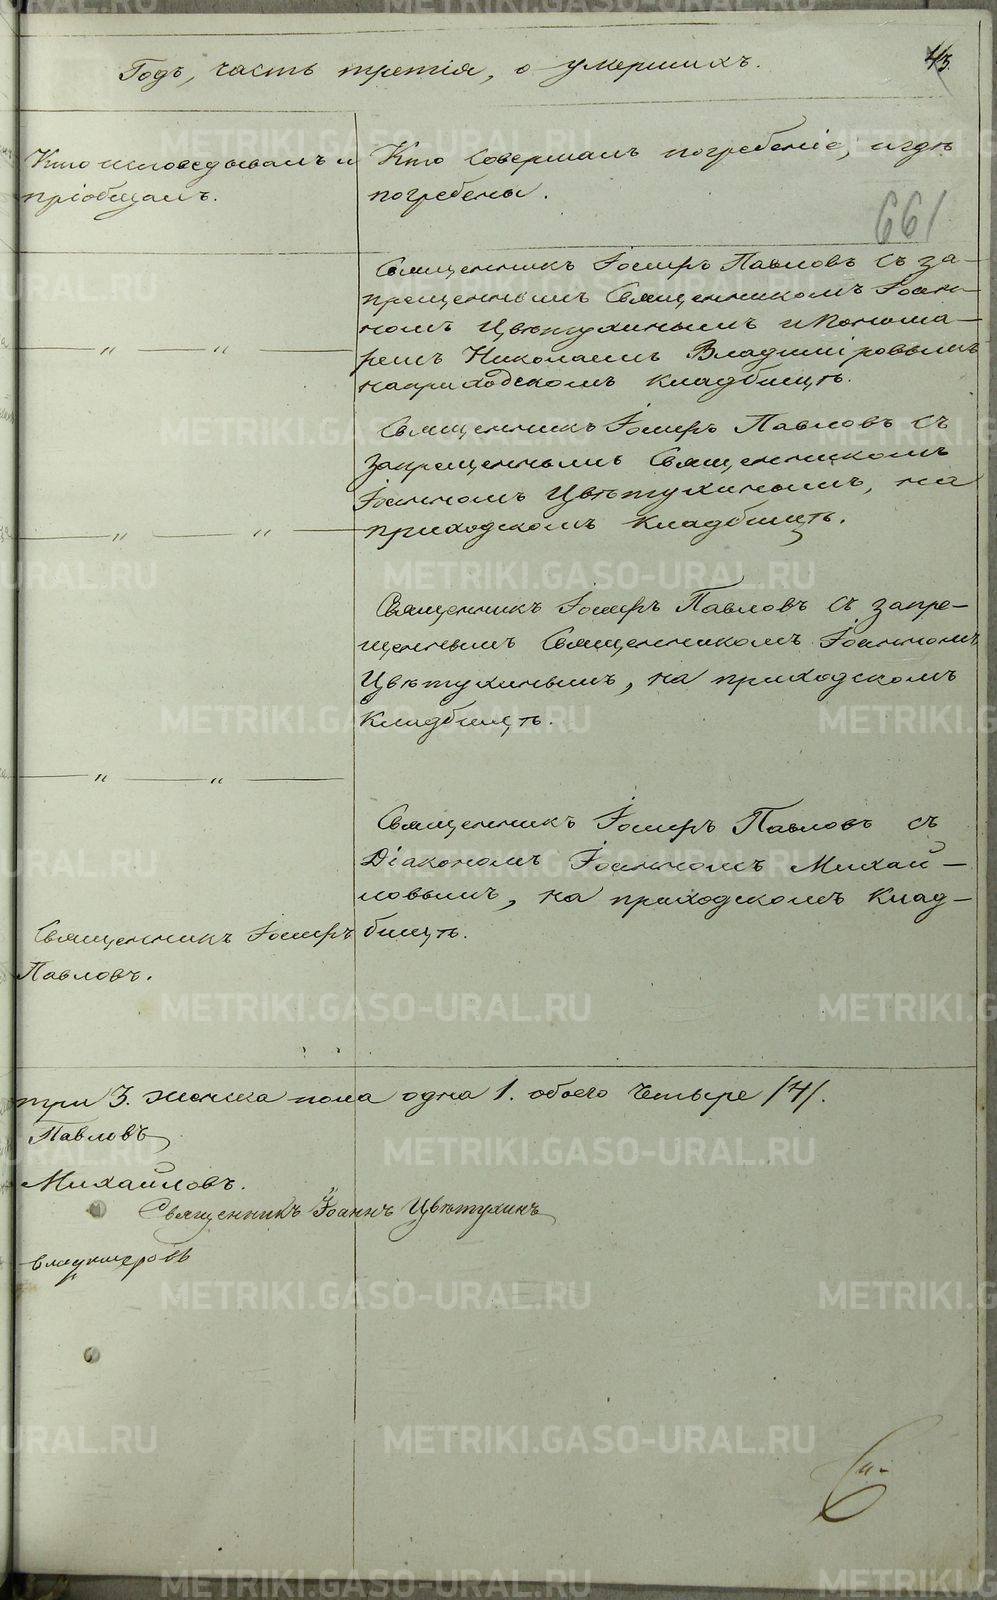 Годъ, часть третія, о умершихъ.
43.
Кто исповѣдывалъ и
пріобщалъ.
Кто совершалъ погребеніе, и гдѣ
погребены.
661
Священникъ Іосифъ Павловъ съ за-
прещеннымъ Священникомъ Іоан-
номъ Цвѣтухинымъ и Понома-
ремъ Николаемъ Владиміровымъ
на приходскомъ кладбищѣ.
— „ — „ —
Священникъ Іосифъ Павловъ съ
запрещеннымъ Священникомъ
Іоанномъ Цвѣтухинымъ, на
приходскомъ кладбищѣ.
— „ — „ —
Священникъ Іосифъ Павловъ съ запре-
щеннымъ Священникомъ Іоанномъ
Цвѣтухинымъ, на приходскомъ
кладбищѣ.
— „ — „ —
Священникъ Іосифъ Павловъ съ
Діакономъ Іоанномъ Михай-
ловымъ, на приходскомъ клад-
бищѣ.
Священникъ Іосифъ
Павловъ.
три 3. женска пола одна 1. обоего четыре /4/.
Павловъ
Михайловъ.
Священникъ Іоаннъ Цвѣтухинъ
Владимеровъ
METRIKI.GASO-URAL.RU